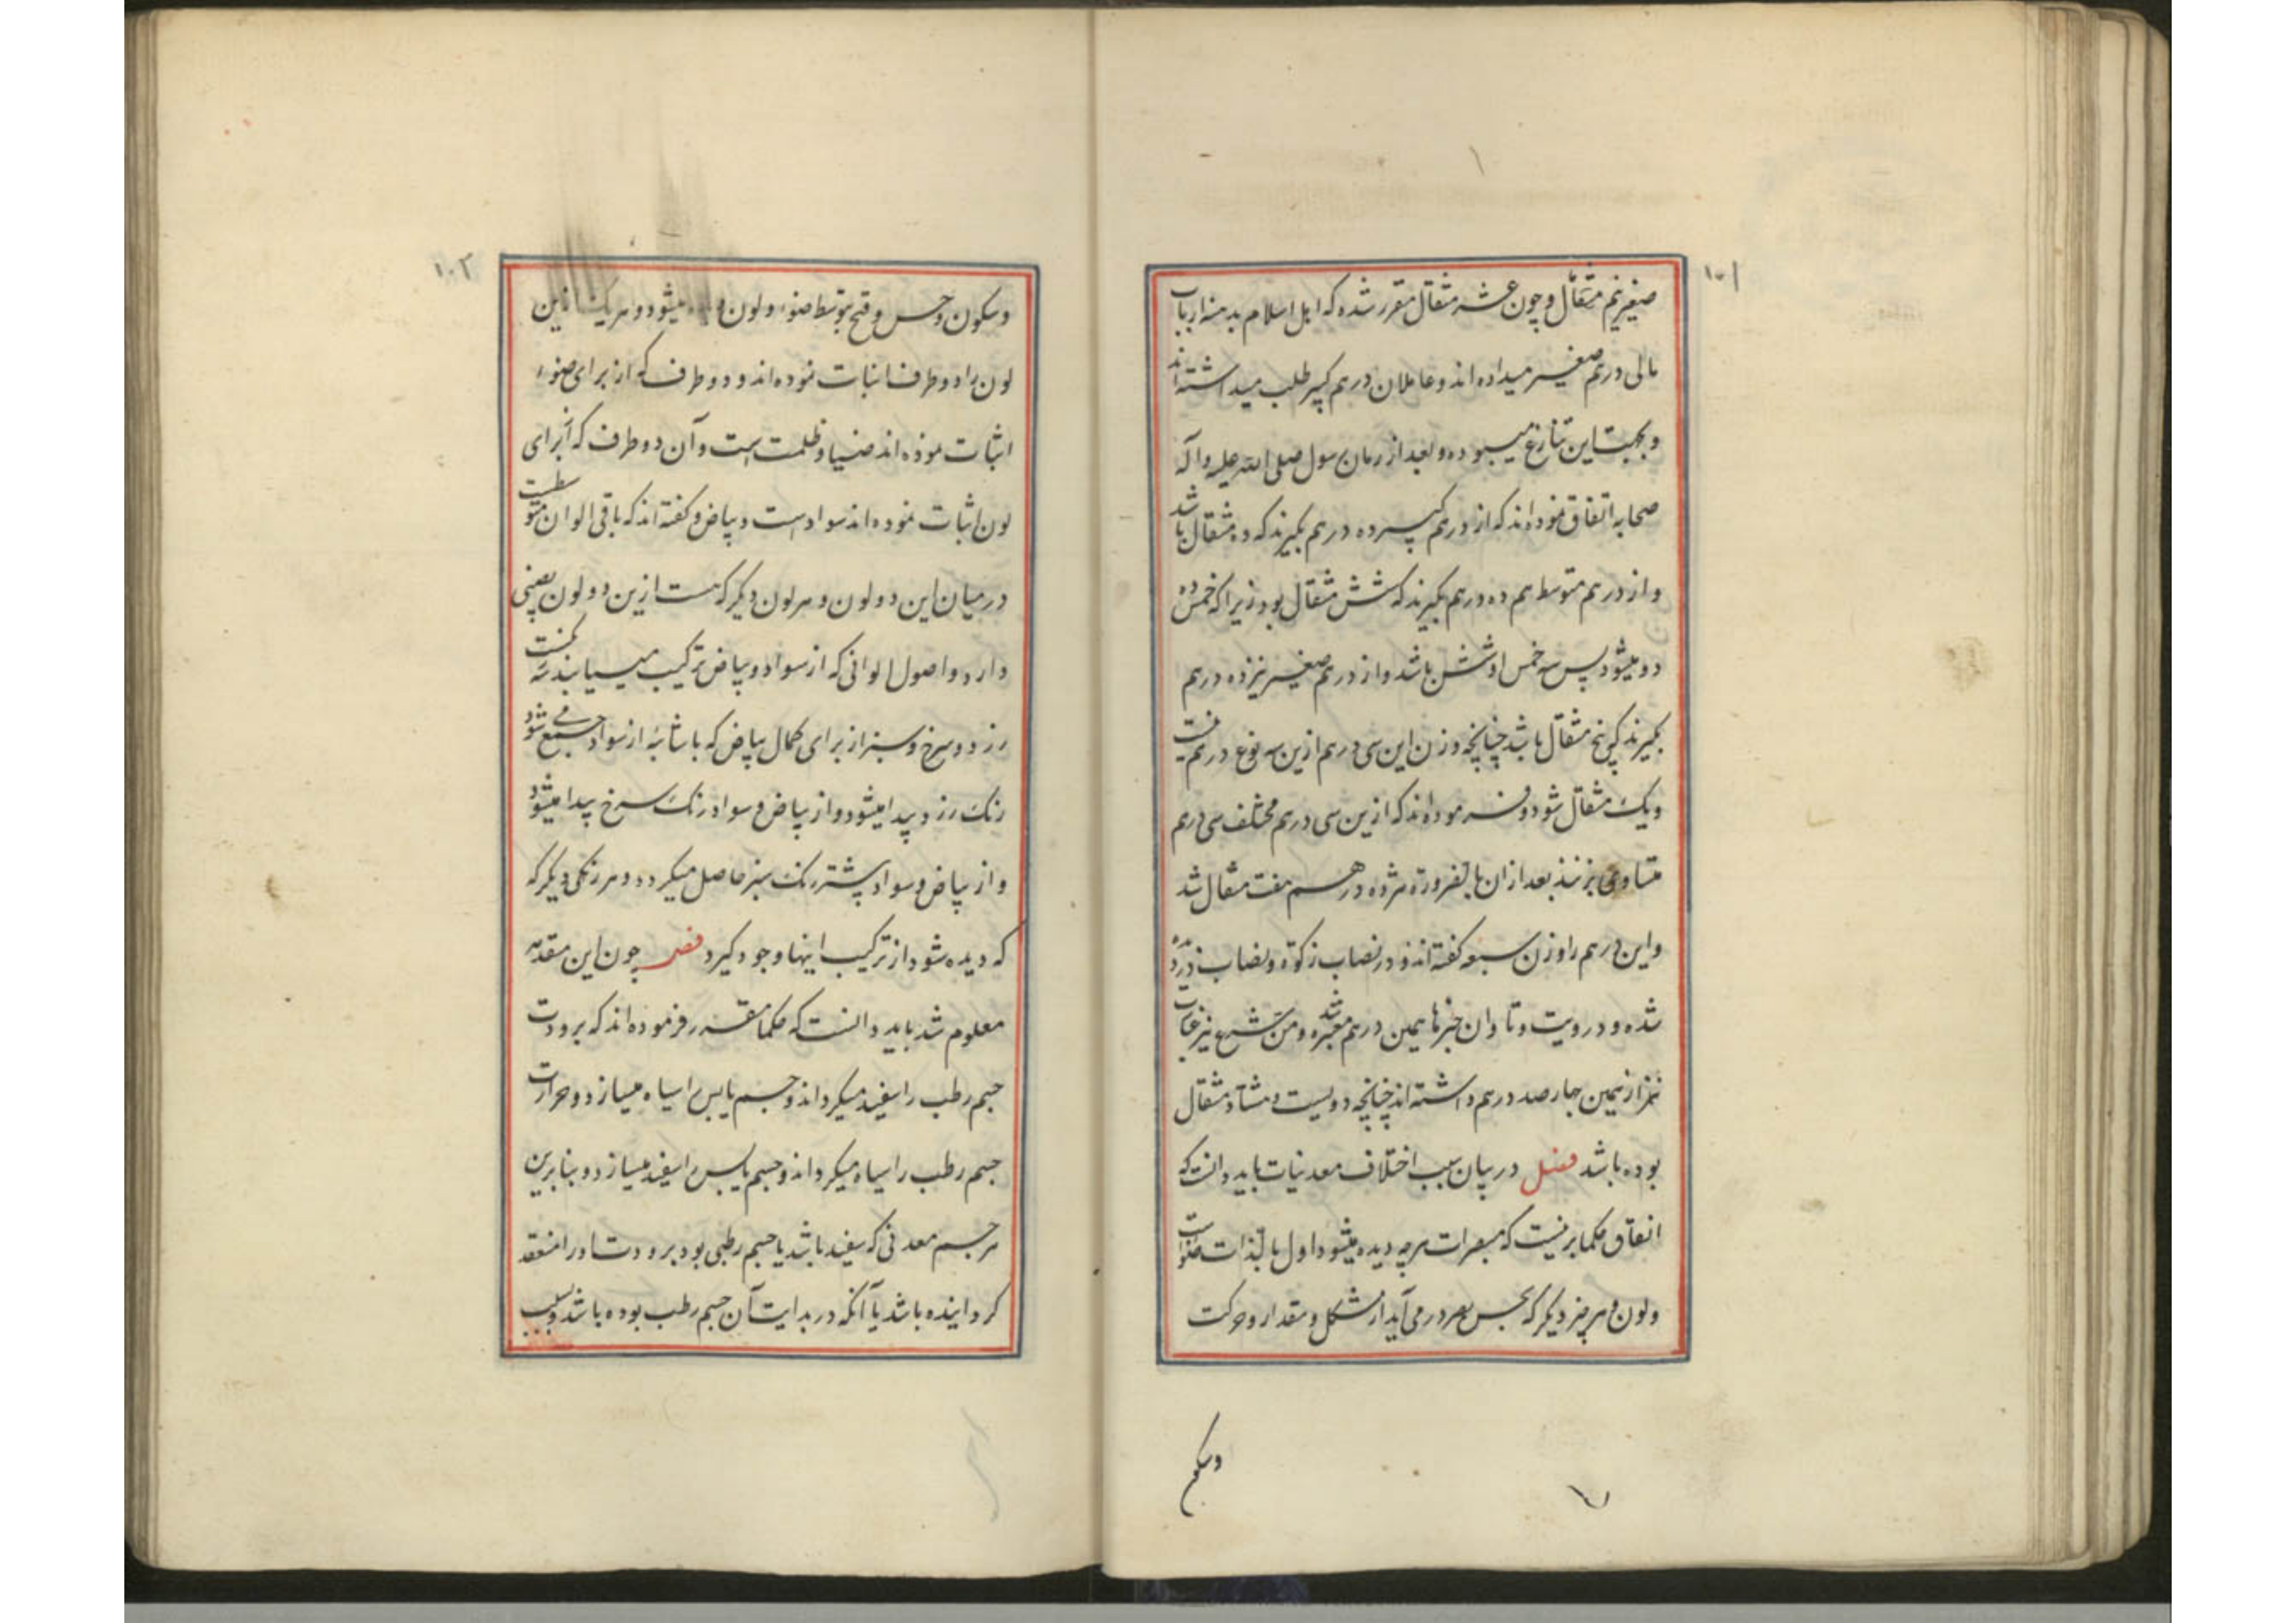 ۱۰۱
صغیر نیم مثقال و چون عشر مثقال مقرر شده که اهل اسلام بدهند ارباب
مالی درهم صغیر میداده اند و عاملان درهم کبیر طلب میداشته اند
و بجهت این تنازع میبوده و بعد از زمان رسول صلی الله علیه و آله
صحابه اتفاق نموده اند که از درهم کبیر ده درهم بگیرند که ده مثقال باشد
و از درهم متوسط هم ده درهم بگیرند که شش مثقال بود زیرا که خمس ده
دو میشود پس سه خمس او شش باشد و از درهم صغیر نیز ده درهم
بگیرند که پنج مثقال باشد چنانچه وزن این سی درهم ازین سه نوع درهم بیست
و یک مثقال شود و فرموده اند که ازین سی درهم مختلف سی درهم
متساوی بزنند بعد از ان بالضرورة هر ده درهم هفت مثقال شد
و این درهم را وزن سبعه گفته اند و در نصاب زکوة و نصاب
شده و در دیت و تاوان خبرها همین درهم معتبر شد و من شرع نیز
نیز از همین چهار صد درهم داشته اند چنانچه دویست و هشتاد مثقال
بوده باشد فصل در بیان سبب اختلاف معدنیات باید دانست که
اتفاق حکما برینست که مبصرات هر چه دیده میشود اول بالذات ضوء است
و لون و هر چیز دیگر که بحس بصر در می آید از شکل و مقدار و حرکت
وسکون
۱۰۲
و سکون و حسن و قبح بتوسط ضوء و لون میشود و هر یک را ازین
لون را دو طرف اثبات نموده اند و دو طرف که از برای ضوء
اثبات نموده اند ضیا و ظلمت است و آن دو طرف که از برای
لون اثبات نموده اند سواد است و بیاض و گفته اند که باقی الوان متوسطست
در میان این دو لون و هر لون دیگر که هست ازین دو لون نصیبی
دارد و اصول الوانی که از سواد و بیاض ترکیب مییابند سه
زرد و سرخ و سبز از برای کمال بیاض که با شائبه از سواد جمع می شود
رنک زرد پیدا میشود و از بیاض و سواد رنک سرخ پیدا میشود
و از بیاض و سواد بیشتر رنک سبز حاصل میگردد و هر رنگی دیگر که
که دیده شود از ترکیب اینها وجود گیرد فصل چون این مقدمه
معلوم شد باید دانست که حکما مقرر فرموده اند که برودت
جسم رطب را سفید میگرداند و جسم یابس را سیاه میسازد و حرارت
جسم رطب را سیاه میگرداند و جسم یابس را سفید میسازد و بنابرین
هر جسم معدنی که سفید باشد یا جسم رطبی بود برودت او را منعقد
گردانیده باشد یا آنکه در بدایت آن جسم رطب بوده باشد و بسبب